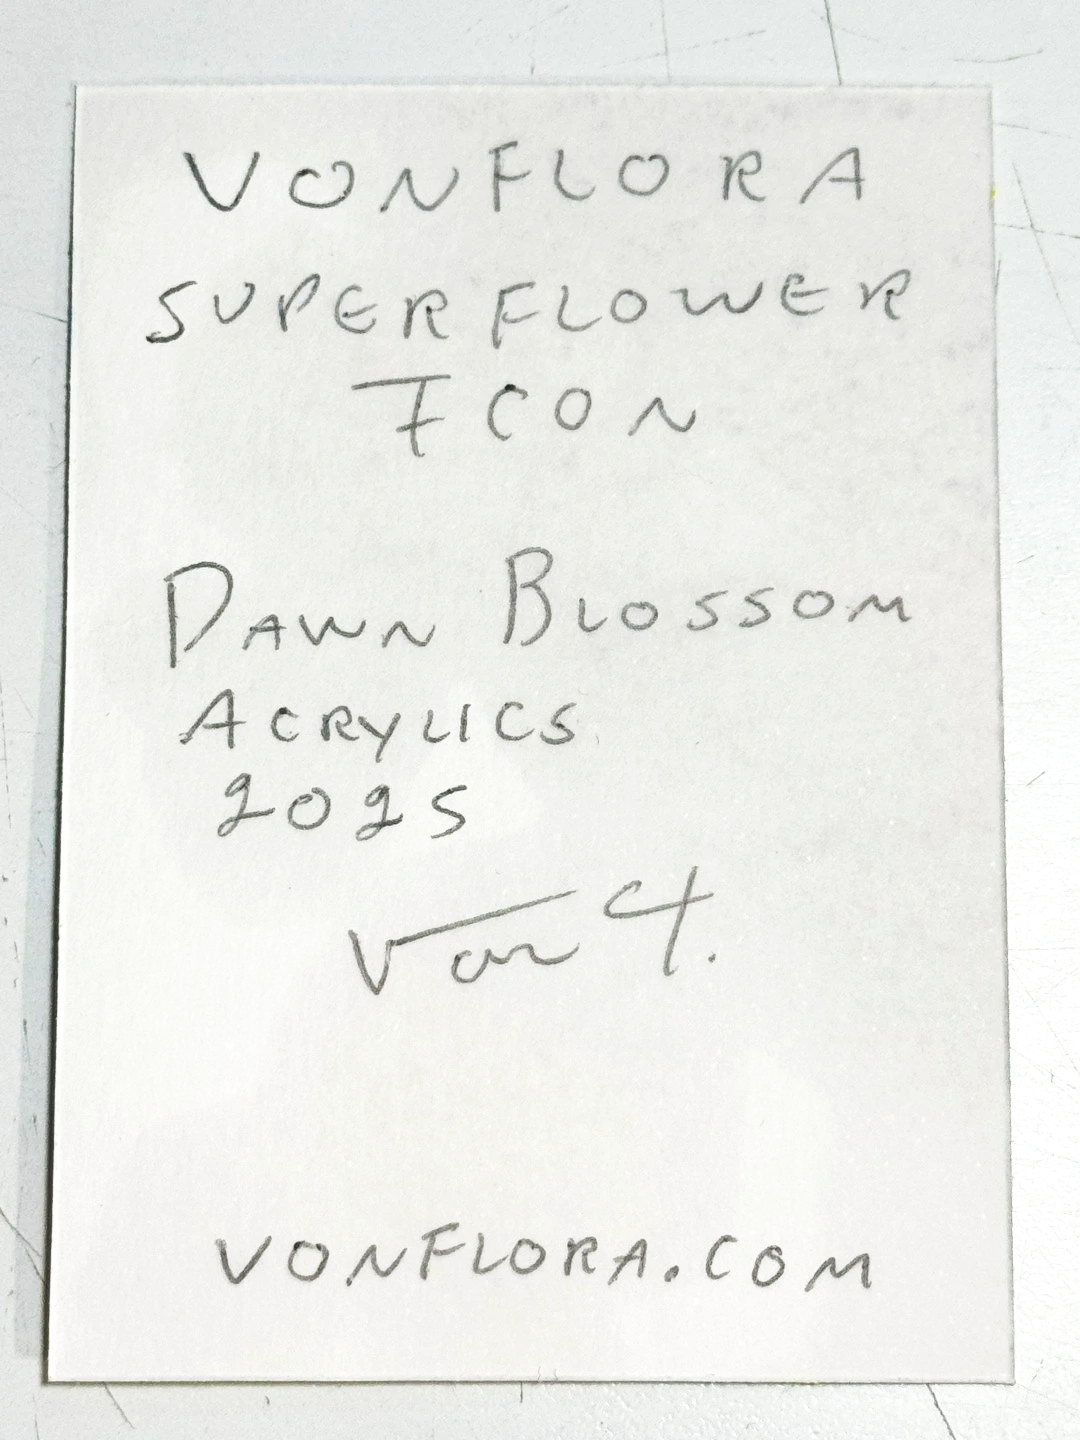 VONFLORA
SUPERFLOWER
ICON
DAWN BLOSSOM
ACRYLICS
2025
VONFLORA.COM